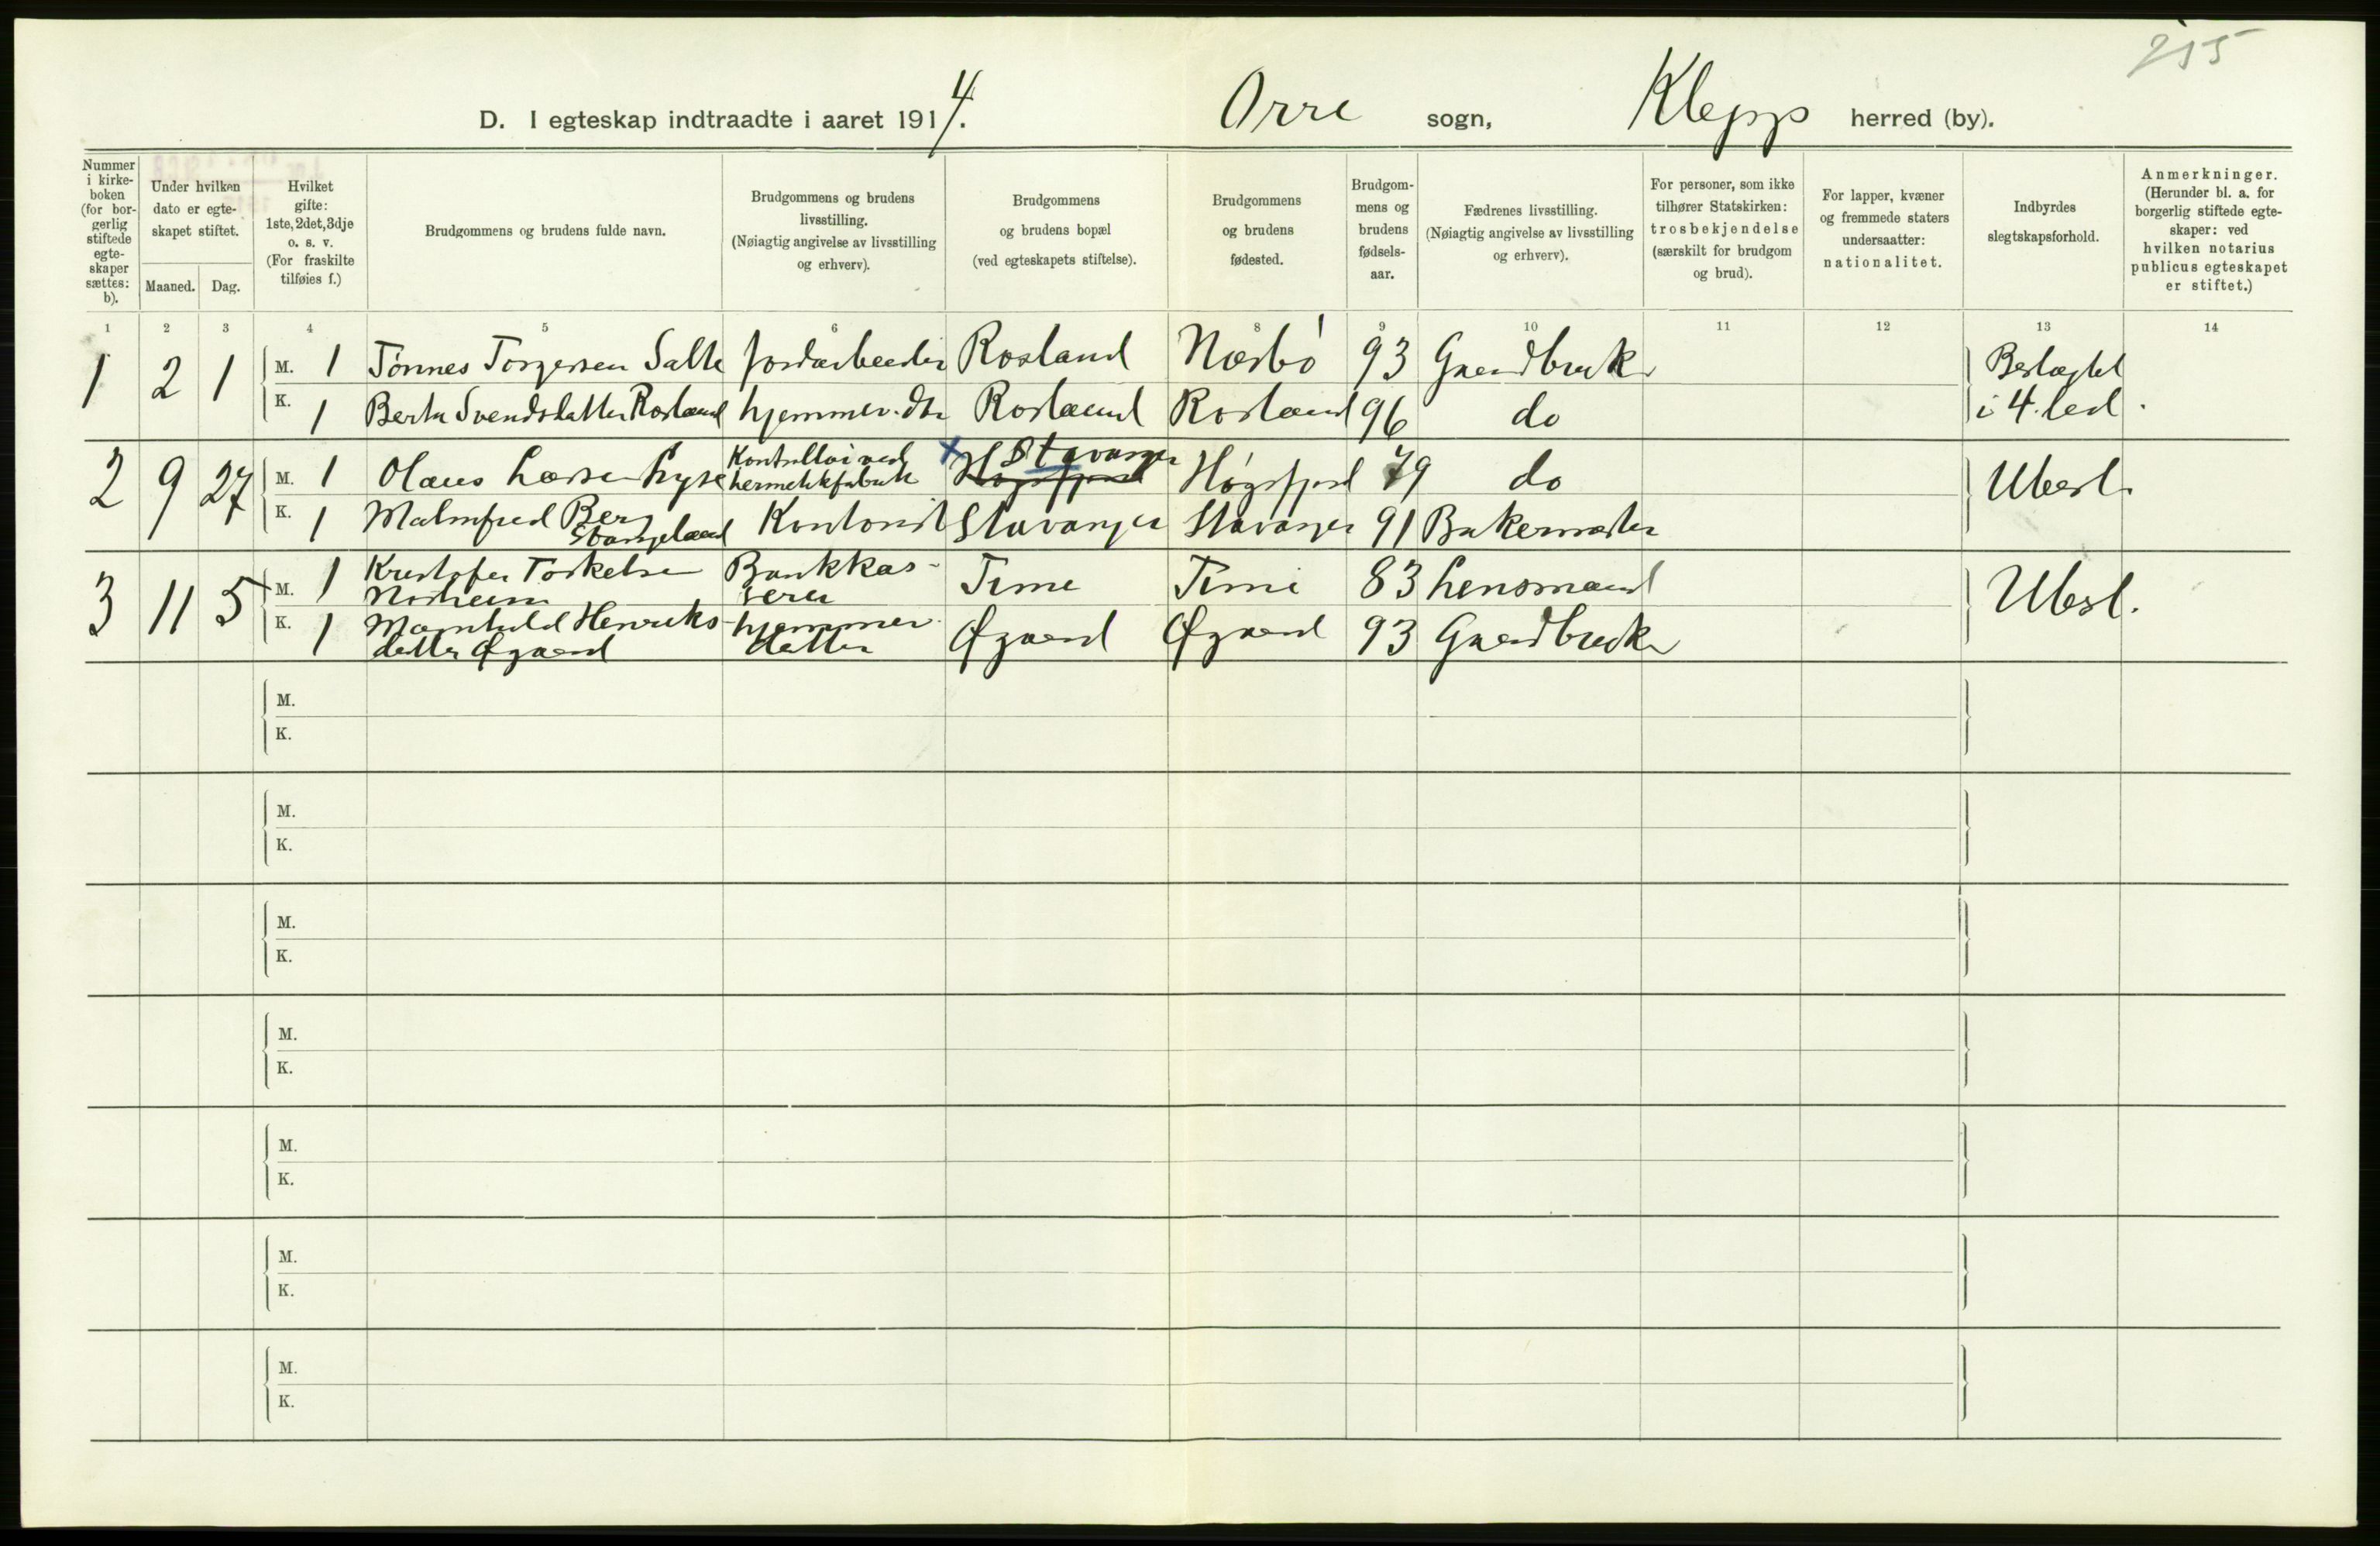 215
D. I egteskap indtraadte i aaret 1914. Orre sogn, Klepp herred (by).
Nummer i kirke-boken (for bor-gerlig stiftede egte-skaper sættes: b).
Under hvilken dato er egte-skapet stiftet.
Maaned. Dag.
Hvilket gifte: 1ste, 2det, 3dje o. s. v. (For fraskilte tilføies f.)
Brudgommens og brudens fulde navn.
Brudgommens og brudens livsstilling. (Nøiagtig angivelse av livsstilling og erhverv).
Brudgommens og brudens bopæl (ved egteskapets stiftelse).
Brudgommens og brudens fødested.
Brudgom-mens og brudens fødsels-aar.
Fædrenes livsstilling. (Nøiagtig angivelse av livsstilling og erhverv).
For personer, som ikke tilhører Statskirken: trosbekjendelse (særskilt for brudgom og brud).
For lapper, kvæner og fremmede staters undersaatter: nationalitet.
Indbyrdes slegtskapsforhold.
Anmerkninger. (Herunder bl. a. for borgerlig stiftede egte-skaper: ved hvilken notarius publicus egteskapet er stiftet.)
1 2 3 4 5 6 8 9 10 11 12 13 14
1 2 1 M. 1 Tönnes Torgersen Salte Jordarbeider Rosland Nærbö 93 Gaardbruk Beslægtet
K. 1 Berta Svendsdatter Rosland hjemmev. dtr Rosland Rosland 96 do i 4. led.
2 9 27 M. 1 Olaus Larsen Lyse Kontrollör ved hermetikfabrik Stavanger Högsfjord 79 do Ubesl.
K. 1 Malmfred Berg Stangeland Kontorist Stavanger Stavanger 91 Bakermester
3 11 5 M. 1 Kristofer Torkelsen Norheim Bankkas-serer Time Time 83 Lensmand Ubesl.
K. 1 Henriks-datter Øgaard hjemmev. datter Øgaard Øgaard 93 Gaardbruker
M.
K.
M.
K.
M.
K.
M.
K.
M.
K.
M.
K.
M.
K.